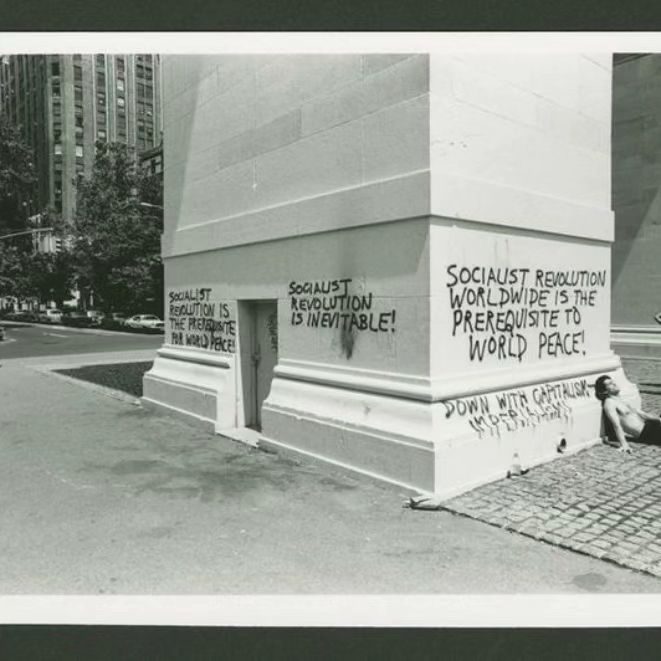 SOCIALIST
REVOLUTION IS
THE PREREQUISITE
FOR WORLD PEACE!
SOCIALIST
REVOLUTION
IS INEVITABLE!
SOCIALIST REVOLUTION
WORLDWIDE IS THE
PREREQUISITE TO
WORLD PEACE!
DOWN WITH CAPITALISM
IMPERIALISM